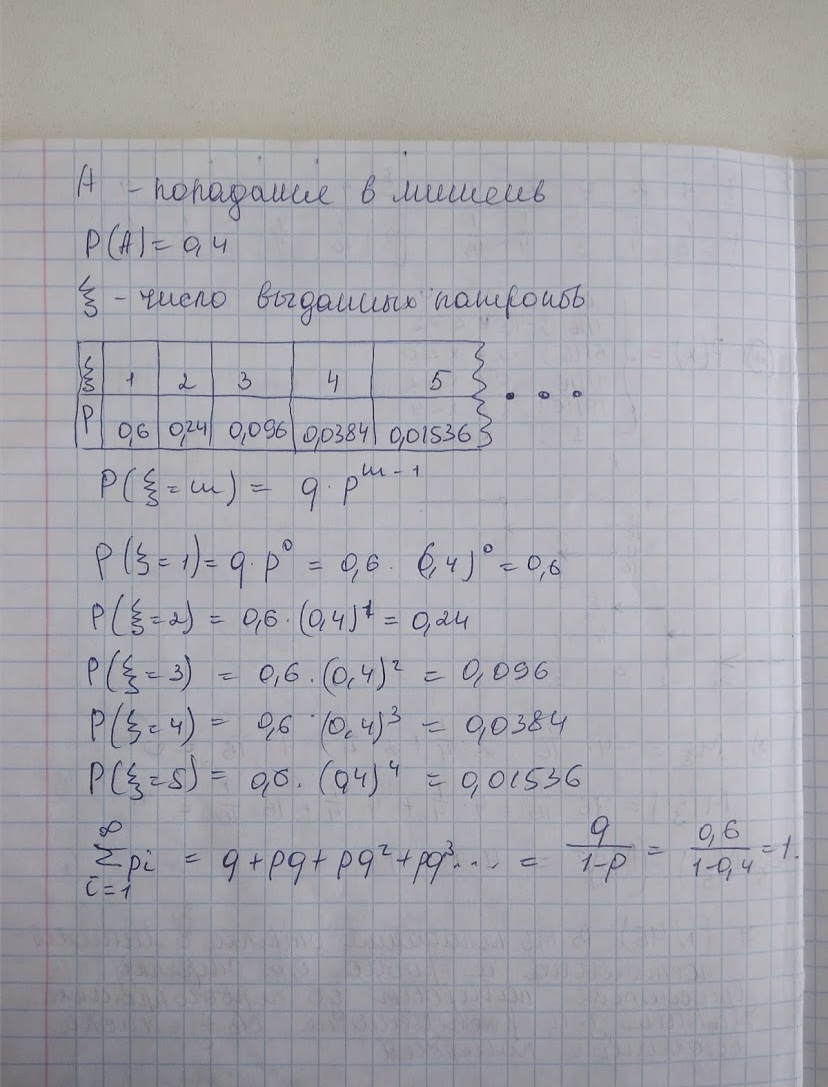 A - попадание в мишень
P(A) = 0,4
ξ - число выданных патронов
ξ 1 2 3 4 5 . . .
P 0,6 0,24 0,096 0,0384 0,01536
P(ξ = m) = q · p^{m-1}
P(ξ = 1) = q · p⁰ = 0,6 · (0,4)⁰ = 0,6
P(ξ = 2) = 0,6 · (0,4)¹ = 0,24
P(ξ = 3) = 0,6 · (0,4)² = 0,096
P(ξ = 4) = 0,6 · (0,4)³ = 0,0384
P(ξ = 5) = 0,6 · (0,4)⁴ = 0,01536
∑_{i=1}^{∞} pi = q + pq + pq² + pq³ .... = q/(1-p) = 0,6/(1-0,4) = 1.